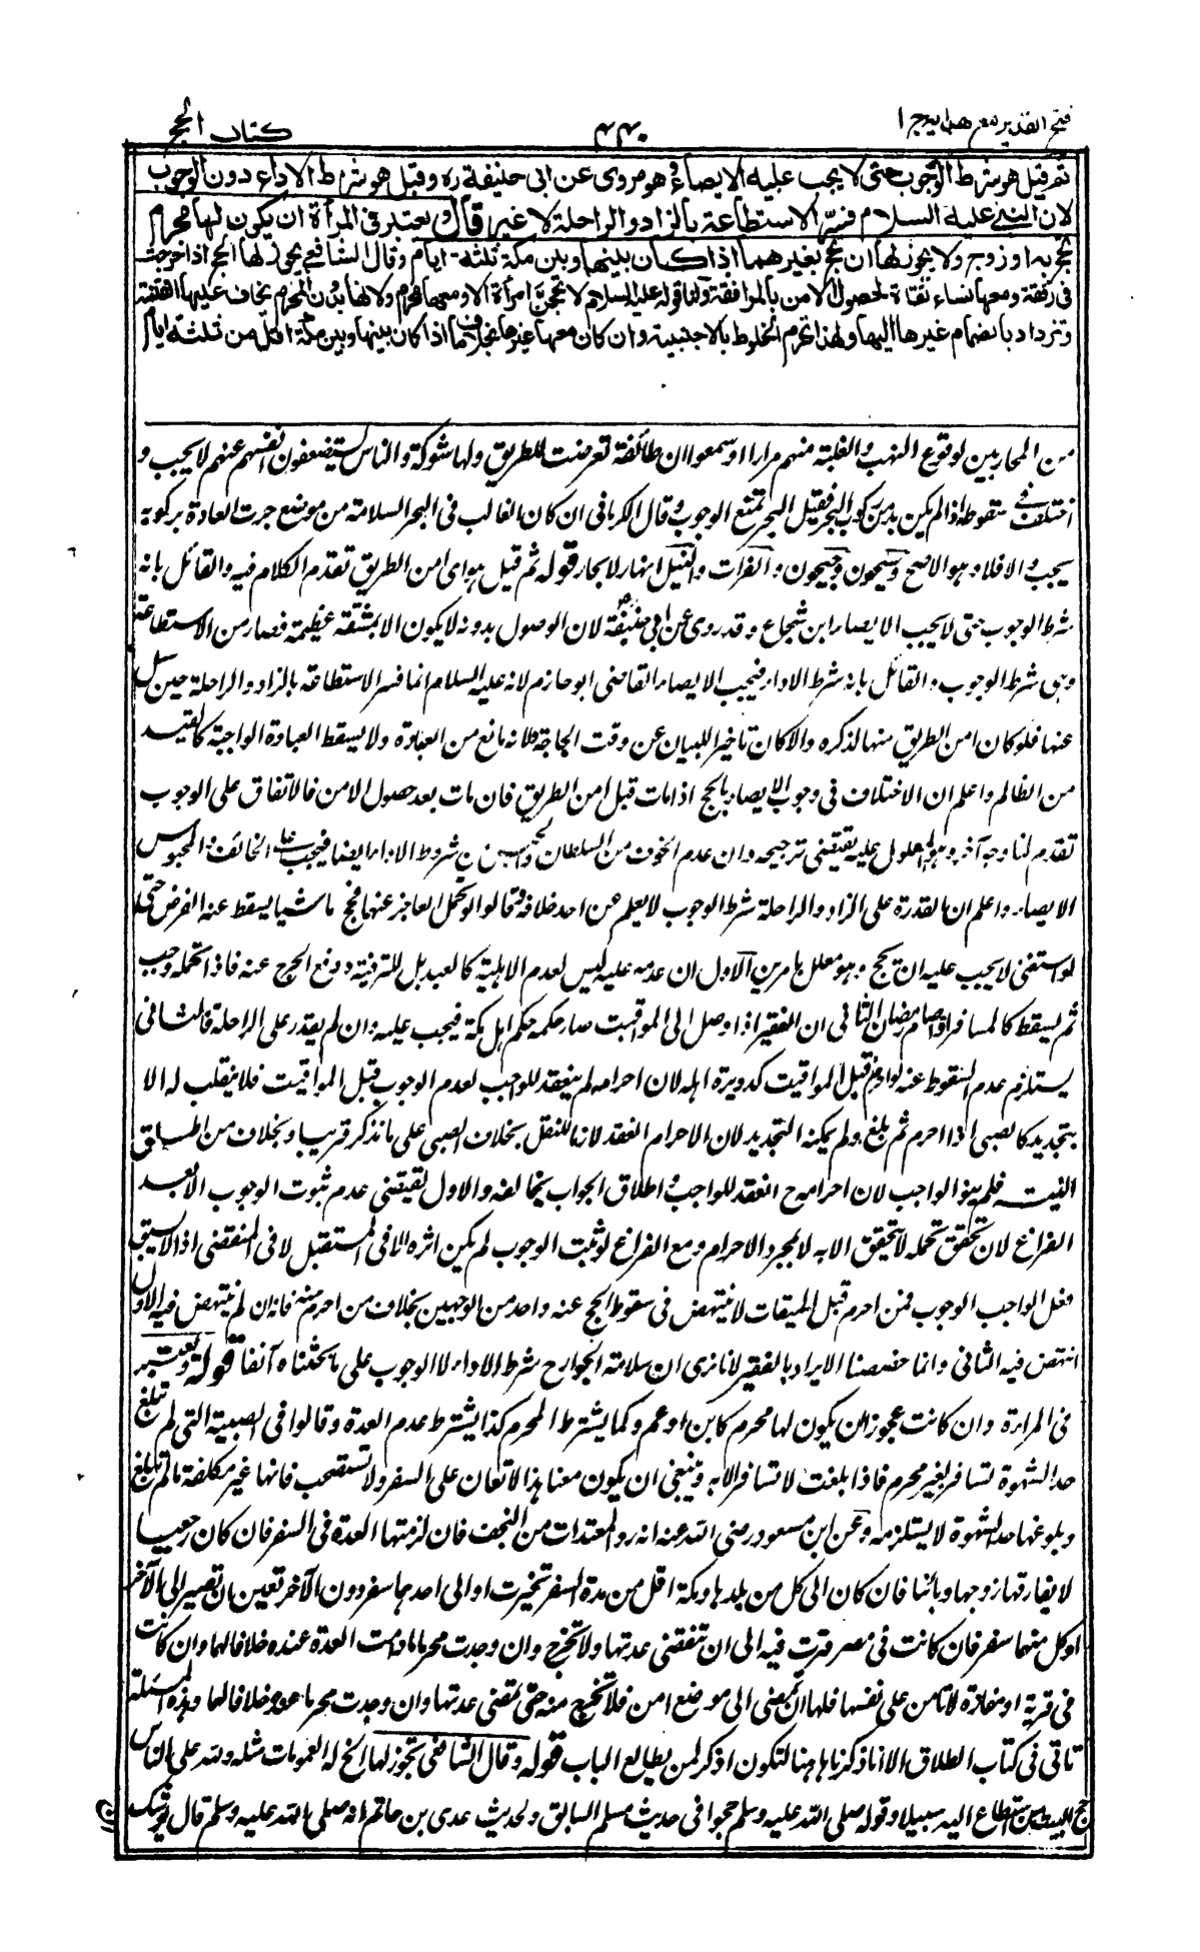 فتح القدير مع هدايه ج ١
٤٤٠
كتاب الحج
ثم قيل هو شرط الوجوب حتى لا يجب عليه الايصاء وهو مروى عن ابى حنيفة ره وقيل هو شرط الاداء دون الوجوب
لان النبي عليه السلام فسّر الاستطاعة بالزاد والراحلة لا غير قال ويعتبر فى المرأة ان يكون لها محرم
تحج به او زوج ولا يجوز لها ان تحج بغيرهما اذا كان بينها وبين مكة ثلثة ايام وقال الشافعي يجوز لها الحج اذا خرجت
فى رفقة ومعها نساء ثقاة لحصول الامن بالمرافقة ولنا قوله عليه السلام لا تحجنّ امرأة الا ومعها محرم ولانها بدون المحرم يخاف عليها الفتنة
وتزداد بانضمام غيرها اليها ولهذا تحرم الخلوة بالاجنبية وان كان معها غيرها بخلاف ما اذا كان بينها وبين مكة اقل من ثلثة ايام
من المحاربين لوقوع النهب والغلبة منهم مرارا او سمعوا ان طائفة تعرضت للطريق ولها شوكة والناس يستضعفون انفسهم عنهم لا يجب و
اختلف فى سقوطه اذا لم يكن بد من ركوب البحر فقيل البحر يمنع الوجوب وقال الكرمانى ان كان الغالب فى البحر السلامة من موضع جرت العادة بركوبه
يجب والا فلا وهو الاصح وسيحون وجيحون والفرات والنيل انهار لا بحار قوله ثم قيل هو اى امن الطريق تقدم الكلام فيه والقائل بانه
شرط الوجوب حتى لا يجب الايصاء ابن شجاع وقد روى عن ابى حنيفة لان الوصول بدونه لا يكون الا بمشقة عظيمة فصار من الاستطاعة
وهى شرط الوجوب والقائل بانه شرط الاداء فيجب الايصاء القاضى ابو حازم لانه عليه السلام انما فسر الاستطاعة بالزاد والراحلة حين سئل
عنها فلو كان امن الطريق منها لذكره والا كان تاخير اللبيان عن وقت الحاجة ولانه مانع من العبادة ولا يسقط العبادة الواجبة كالقيد
من الظالم واعلم ان الاختلاف فى وجوب الايصاء بالحج اذا مات قبل امن الطريق فان مات بعد حصول الامن فالاتفاق على الوجوب
تقدم لنا وجه آخر وهو المعول عليه يقتضى ترجيحه وان عدم الخوف من السلطان والحبس من شروط الاداء ايضا فيجب على الخائف والمحبوس
الايصاء واعلم ان القدرة على الزاد والراحلة شرط الوجوب لا يعلم عن احد خلافه وقالوا لو تحمل العاجز عنهما فحج ماشيا يسقط عنه الفرض حتى
لو استغنى لا يجب عليه ان يحج وهو معلل بامرين الاول ان عدمه عليه ليس لعدم الاهلية كالعبد بل للترفية ودفع الحرج عنه فاذا تحمله وجب
ثم يسقط كالمسافر اذا صام رمضان الثانى ان الفقير اذا وصل الى المواقيت صار حكمه حكم اهل مكة فيجب عليه وان لم يقدر على الراحلة فالثانى
يستلزم عدم السقوط عنه لو احرم قبل المواقيت كدويرة اهله لان احرامه لم ينعقد للواجب لعدم الوجوب قبل المواقيت فلا ينقلب له الا
بتجديد كالصبى اذا احرم ثم بلغ ولم يمكنه التجديد لان الاحرام انعقد لازما للنفل بخلاف الصبى على ما نذكر قريبا وبخلاف من اطلق
النية فلم ينو الواجب لان احرامه ح انعقد للواجب واطلاق الجواب يخالفه والاول يقتضى عدم ثبوت الوجوب الا بعد
الفراغ لان تحقق تحمله لا يتحقق الا به لا بمجرد الاحرام ومع الفراغ لو ثبت الوجوب لم يكن اثره الا فى المستقبل لا فى المنقضى اذ لا يسبق
فعل الواجب الوجوب فمن احرم قبل الميقات لا ينتهض فى سقوط الحج عنه واحد من الوجهين بخلاف من احرم منه فانه ان لم ينتهض فيه الاول
انتهض فيه الثانى وانما خصصنا الايراد بالفقير لانا نرى ان سلامة الجوارح شرط الاداء لا الوجوب على ما بحثناه آنفا قوله ويعتبر
فى المرأة وان كانت عجوزا ان يكون لها محرم كابن او عم وكما يشترط المحرم كذا يشترط عدم العدة وقالوا فى الصبية التى لم تبلغ
حد الشهوة تسافر بغير محرم فاذا بلغت لا تسافر الا به وينبغى ان يكون معنا هذا لا تعان على السفر ولا تستصحب فانها غير مكلفة ما لم تبلغ
وبلوغها حد الشهوة لا يستلزمه وعن ابن مسعود رضى الله عنه انه رد المعتدات من النجف فان لزمتها العدة فى السفر فان كان رجعيا
لا يفارقها زوجها وبائنا فان كان الى كل من بلدها ومكة اقل من مدة السفر تخيرت او الى احدهما سفر دون الآخر تعين ان تصير الى الآخر
او كل منهما سفر فان كانت فى مصر قرت فيه الى ان تنقضى عدتها ولا تخرج وان وجدت محرما ما دامت العدة عنده خلافا لهما وان كانت
فى قرية او مفازة لا تامن على نفسها فلها ان تمضى الى موضع امن فلا تخرج منه حتى تمضى عدتها وان وجدت محرما عنده خلافا لهما وهذه المسئلة
تاتى فى كتاب الطلاق الا انا ذكرناها ههنا لتكون اذكر لمن يطالع الباب قوله وقال الشافعى يجوز لها الخ له العمومات مثل ولله على الناس
حج البيت من استطاع اليه سبيلا وقوله صلى الله عليه وسلم حجوا فى حديث مسلم السابق ولحديث عدى بن حاتم انه صلى الله عليه وسلم قال يوشك